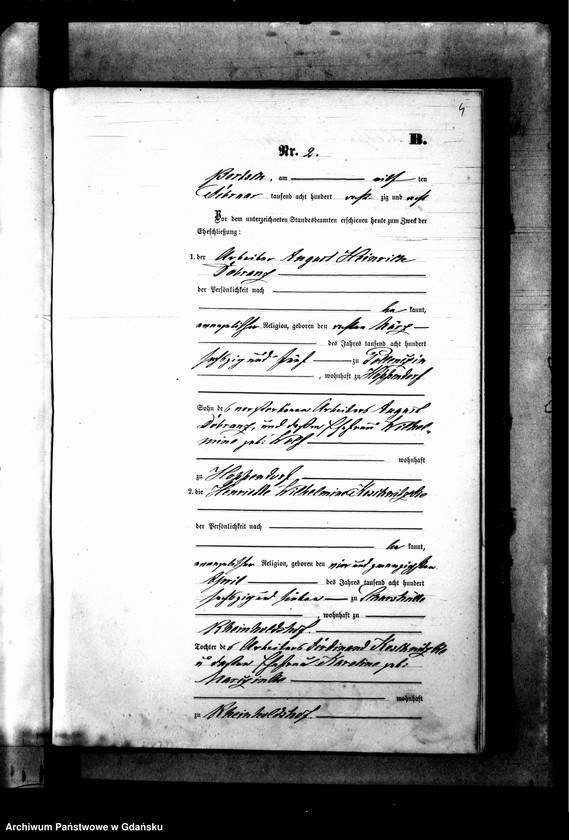 4
B.
Nr. 2.
am elf ten
Februar tausend acht hundert acht zig und acht
Vor dem unterzeichneten Standesbeamten erschienen heute zum Zweck der
Eheschließung:
1. der Arbeiter August Heinrich
Dobranz
der Persönlichkeit nach
be kannt,
evangelischer Religion, geboren den ersten März
des Jahres tausend acht hundert
sechszig und fünf zu
, wohnhaft zu Hoppendorf
Sohn des verstorbenen Arbeiters August
Dobranz, und dessen Ehefrau Wilhel-
mine geb: Wolf
wohnhaft
zu Hoppendorf
2. die Henriette Wilhelmine
der Persönlichkeit nach
be kannt,
evangelischer Religion, geboren den vier und zwanzigsten
April des Jahres tausend acht hundert
sechszig und sieben zu Scharshütte
, wohnhaft zu
Rheinholdshof
Tochter des Arbeiters Ferdinand
u dessen Ehefrau Karoline geb:
wohnhaft
zu Rheinholdshof
Archiwum Państwowe w Gdańsku